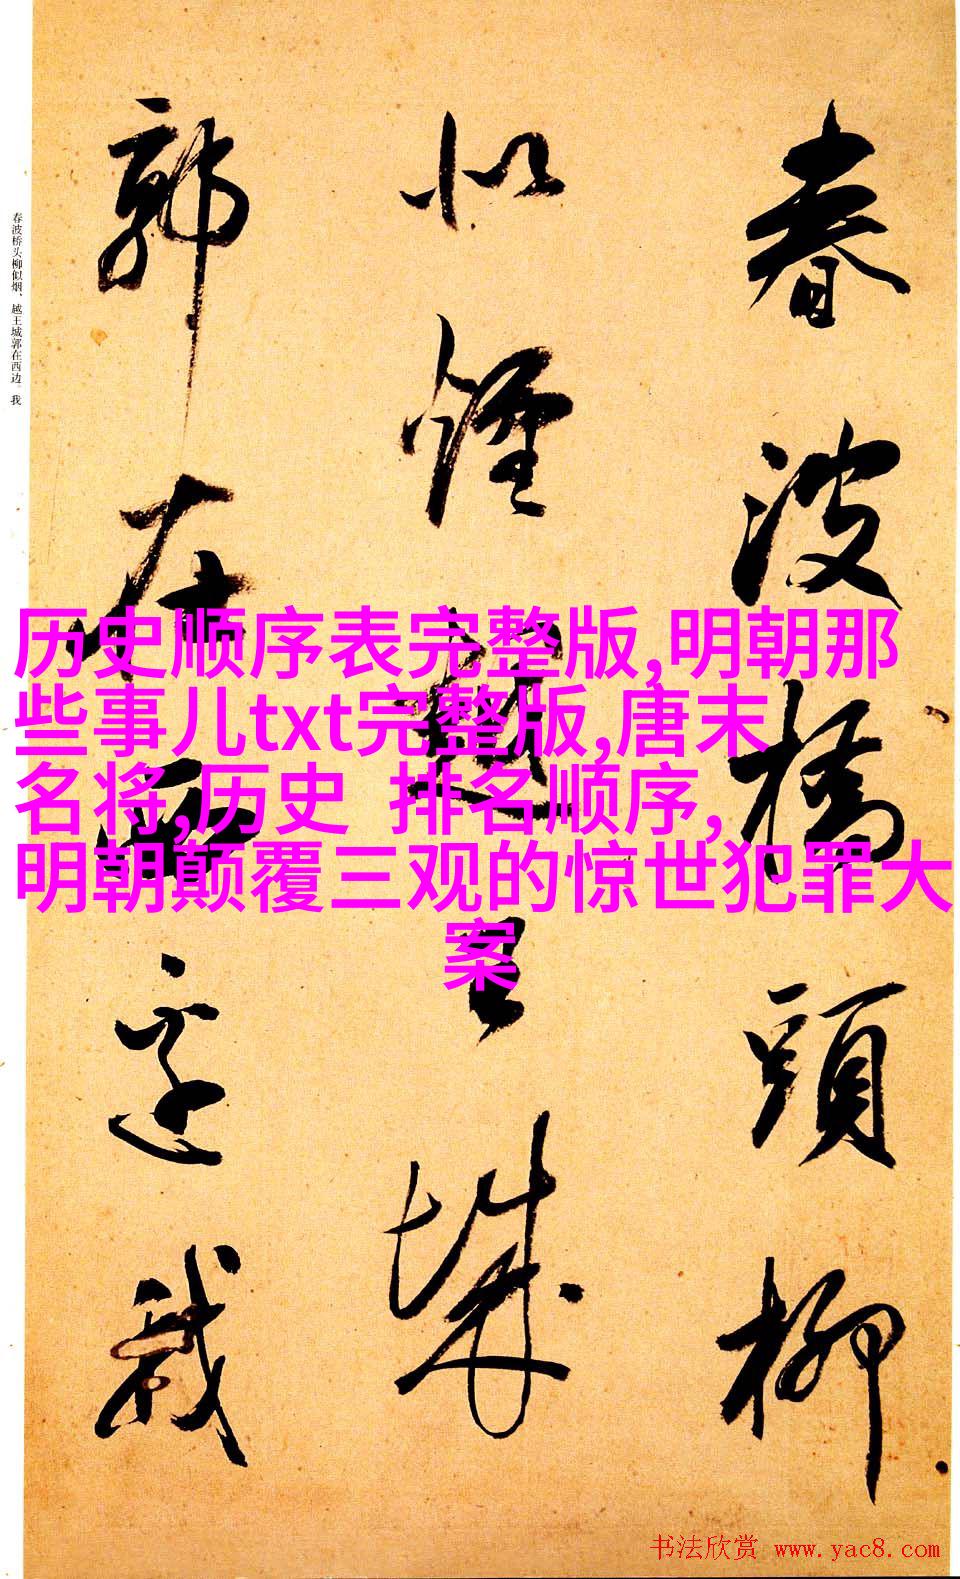 春波橋頭柳
似煙越王城
郭在西邊我
春波桥头柳似烟、越王城郭在西边。我
历史顺序表完整版,明朝那
些事儿txt完整版,唐末
名将,历史 排名顺序,
明朝颠覆三观的惊世犯罪大
案
书法欣赏 www.yac8.com